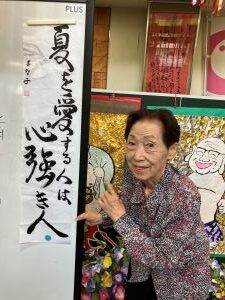 PLUS
夏を愛する人は、
心強き人